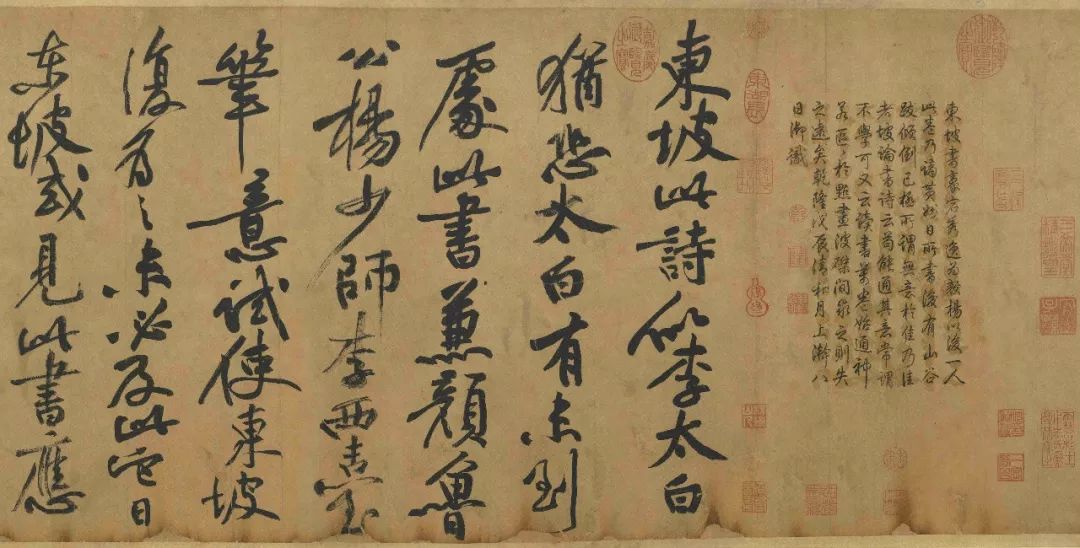 東坡書豪宕秀逸為顏楊以後一人
此卷乃謫黃州日所書後有山谷
跋傾倒已極所謂無意於佳乃佳
者坡論書詩云苟能通其意常謂
不學可又云讀書萬卷始通神
若區〻於點畫波磔間求之則失
之遠矣乾隆戊辰清和月上澣八
日御識
東坡此詩似李太白
猶恐太白有未到
處此書兼顏魯
公楊少師李西臺
筆意試使東坡
復為之未必及此它日
東坡或見此書應
嘉慶御覽之寶